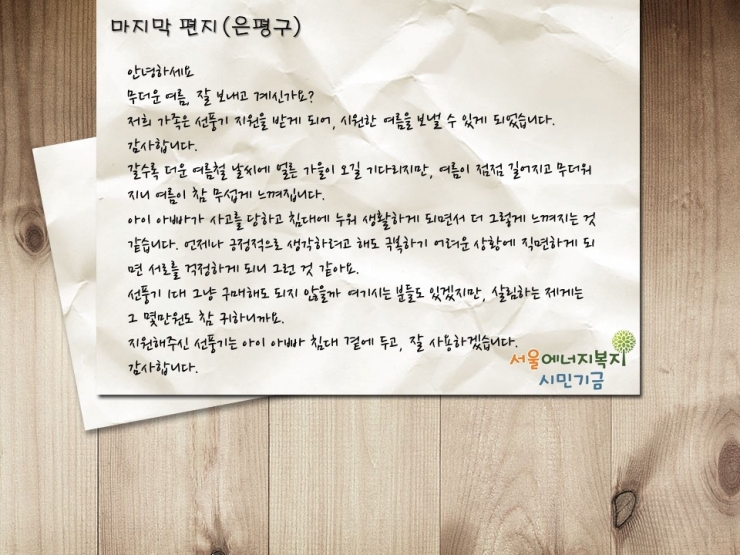 마지막 편지(은평구)
안녕하세요
무더운 여름, 잘 보내고 계신가요?
저희 가족은 선풍기 지원을 받게 되어, 시원한 여름을 보낼 수 있게 되었습니다.
감사합니다.
갈수록 더운 여름철 날씨에 얼른 가을이 오길 기다리지만, 여름이 점점 길어지고 무더워
지니 여름이 참 무섭게 느껴집니다.
아이 아빠가 사고를 당하고 침대에 누워 생활하게 되면서 더 그렇게 느껴지는 것
같습니다. 언제나 긍정적으로 생각하려고 해도 극복하기 어려운 상황에 직면하게 되
면 서로를 걱정하게 되니 그런 것 같아요.
선풍기 1대 그냥 구매해도 되지 않을까 여기시는 분들도 있겠지만, 살림하는 제게는
그 몇만원도 참 귀하니까요.
지원해주신 선풍기는 아이 아빠 침대 곁에 두고, 잘 사용하겠습니다.
감사합니다.
서울에너지복지
시민기금